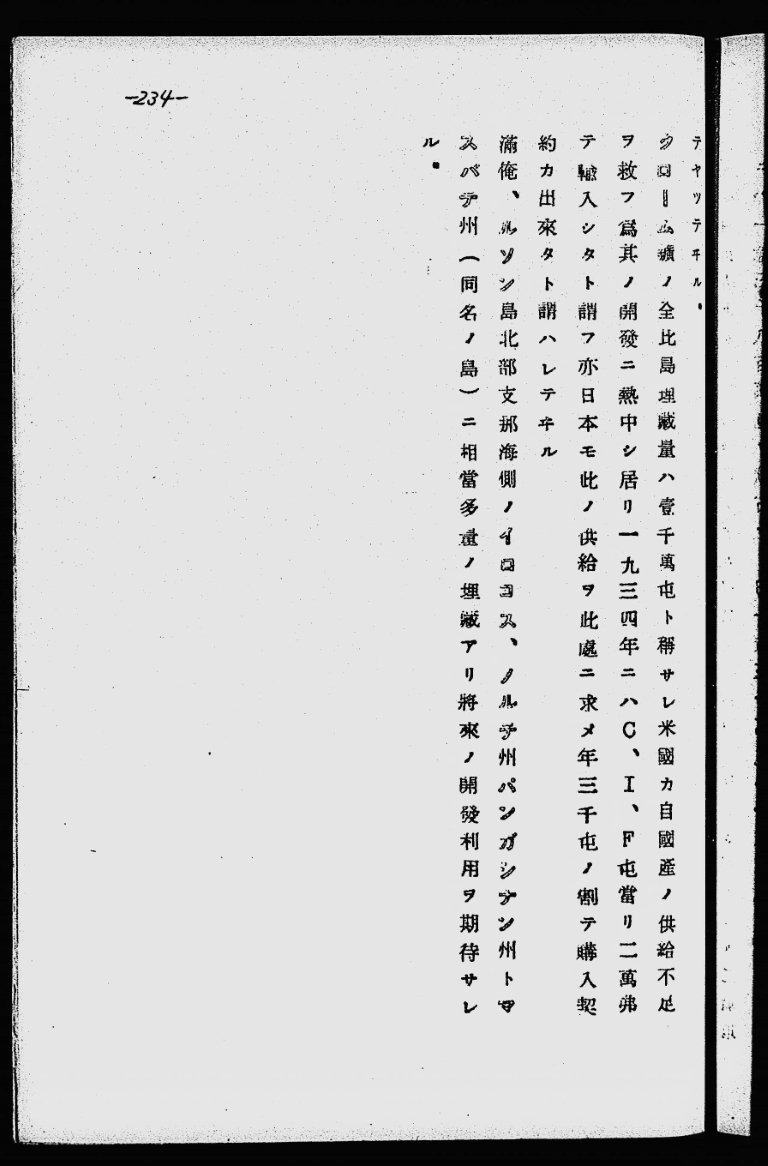 -234-
テヤツテヰル。
クローム鑛ノ全比島埋藏量ハ壹千萬屯ト稱サレ米國カ自國產ノ供給不足
ヲ救フ爲其ノ開發ニ熱中シ居リ一九三四年ニハC、I、F屯當リ二萬弗
テ輸入シタト謂フ亦日本モ此ノ供給ヲ此處ニ求メ年三千屯ノ割テ購入契
約カ出來タト謂ハレテヰル
滿俺、ルソン島北部支那海側ノイロコス、ノルテ州パンガシナン州トマ
スバテ州(同名ノ島)ニ相當多量ノ埋藏アリ將來ノ開發利用ヲ期待サレ
ル。